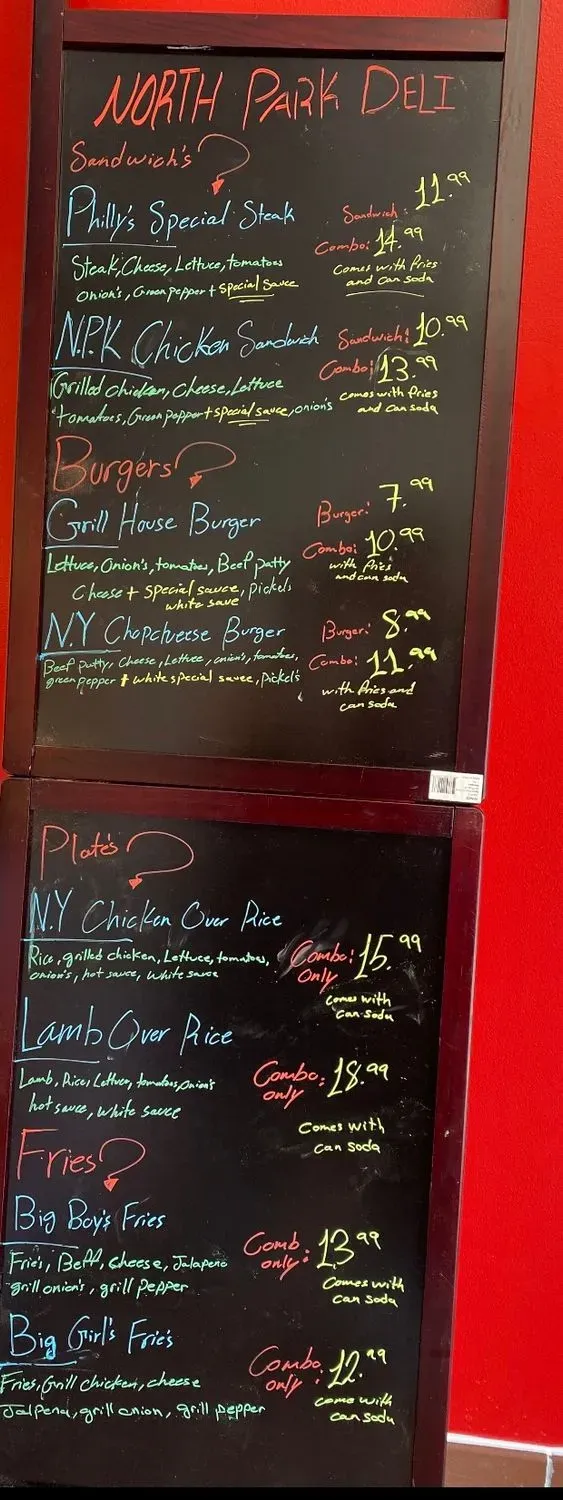 NORTH PARK DELI
Sandwich's
Philly's Special Steak
Sandwich: 11.99
Combo: 14.99
Steak, Cheese, Lettuce, tomatoes
onion's, Green pepper + special sauce
comes with fries
and can soda
N.P.K Chicken Sandwich
Sandwich: 10.99
Combo: 13.99
Grilled chicken, Cheese, Lettuce
tomatoes, Green pepper + special sauce, onion's
comes with fries
and can soda
Burgers
Grill House Burger
Burger: 7.99
Combo: 10.99
Lettuce, Onion's, tomatoes, Beef patty
Cheese + special sauce, pickels
white save
with fries
and can soda
N.Y Chopcheese Burger
Burger: 8.99
Combo: 11.99
Beef patty, cheese, Lettuce, onion's, tomatoes,
green pepper + white special sauce, pickel's
with fries and
can soda
Plate's
N.Y Chicken Over Rice
Combo: 15.99
only
Rice, grilled chicken, Lettuce, tomatoes,
onion's, hot sauce, white sauce
comes with
can soda
Lamb Over Rice
Combo: 18.99
only
Lamb, Rice, Lettuce, tomatoes, onion's
hot sauce, white sauce
Comes with
can soda
Fries
Big Boy's Fries
Comb
only: 13.99
Fries, Beff, cheese, Jalapeno
grill onion's, grill pepper
Comes with
can soda
Big Girl's Frie's
Combo
only: 12.99
Fries, Grill chicken, cheese
Jalpeno, grill onion, grill pepper
come with
can soda